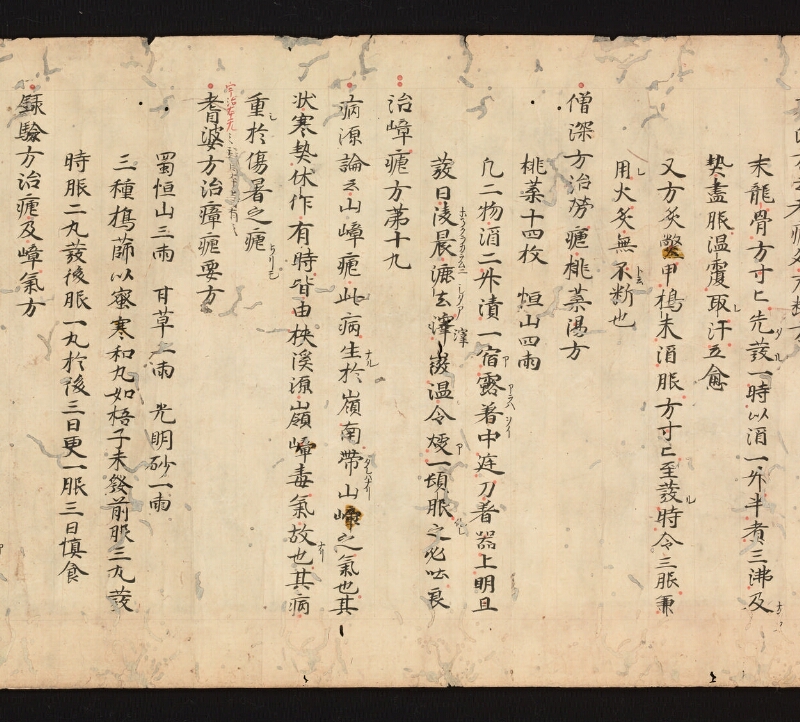 末龍骨方寸匕先發一時以酒一升半煮三沸及
熱盡服温覆取汗立愈
又方炙鱉甲搗末酒服方寸匕至發時令三服兼
用火炙無不断也
僧深方治勞瘧桃葉湯方
桃葉十四枚 恒山四兩
凡二物酒二升漬一宿露著中庭刀著器上明旦
發日凌晨漉去滓微温令煖一頓服之必吐良
治嶂瘧方第十九
病源論云山嶂瘧此病生於嶺南帶山嶂之氣也其
状寒熱休作有時皆由挾溪源嶺嶂毒氣故也其病
重於傷暑之瘧
耆婆方治瘴瘧要方
蜀恒山三兩 甘草一兩 光明砂一兩
三種搗篩以蜜和丸如梧子未發前服三丸發
時服二丸發後服一丸於後三日更一服三日慎食
録驗方治瘧及嶂氣方